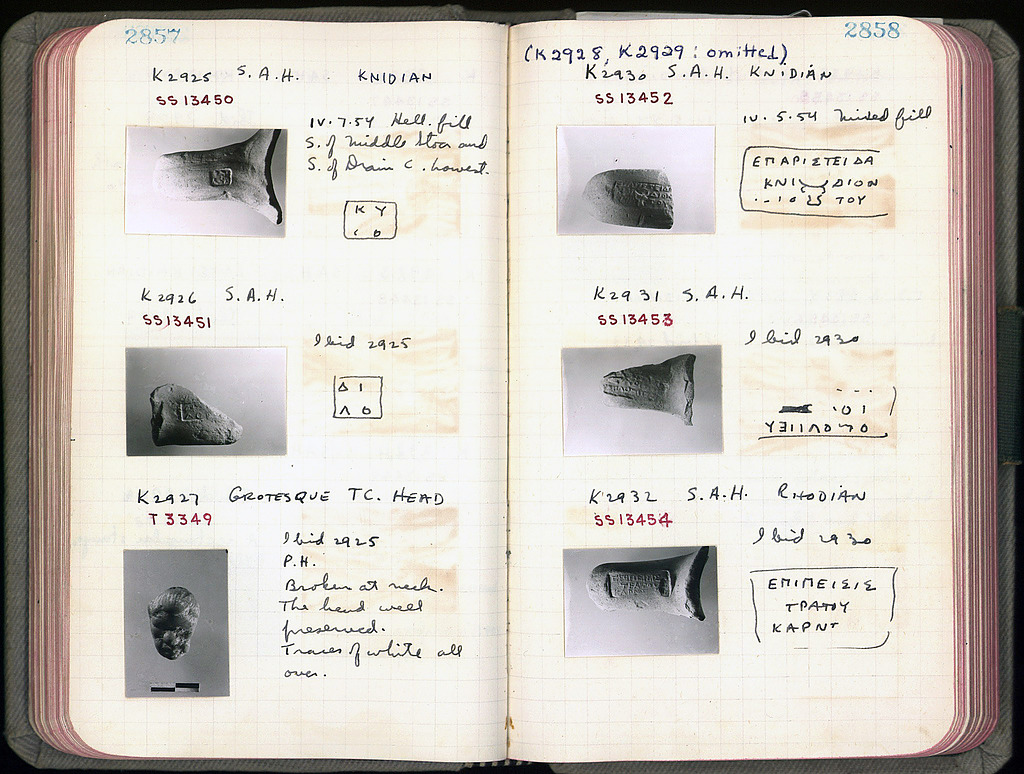 2857
K2925 S.A.H. KNIDIAN
SS 13450
IV.7.54 Hell. fill
S. of Middle Stoa and
S. of Drain C. Lowest.
Κ Υ
Ο
K2926 S.A.H.
SS13451
Ibid 2925
Δ Ι
Λ Ο
K2927 GROTESQUE TC. HEAD
T 3349
Ibid 2925
P.H.
Broken at neck.
The head well
preserved.
Traces of white all
over.
2858
(K2928, K2929: omitted)
K2930 S.A.H. KNIDIAN
SS 13452
IV.5.54 Mixed fill
ΕΠΑΡΙΣΤΕΙΔΑ
ΚΝΙ ΔΙΟΝ
ΤΟΥ
K2931 S.A.H.
SS 13453
Ibid 2930
K2932 S.A.H. RHODIAN
SS13454
Ibid 2930
ΕΠΙΠΕΙΣΙΣ
ΤΡΑΤΟΥ
ΚΑΡΝΤ